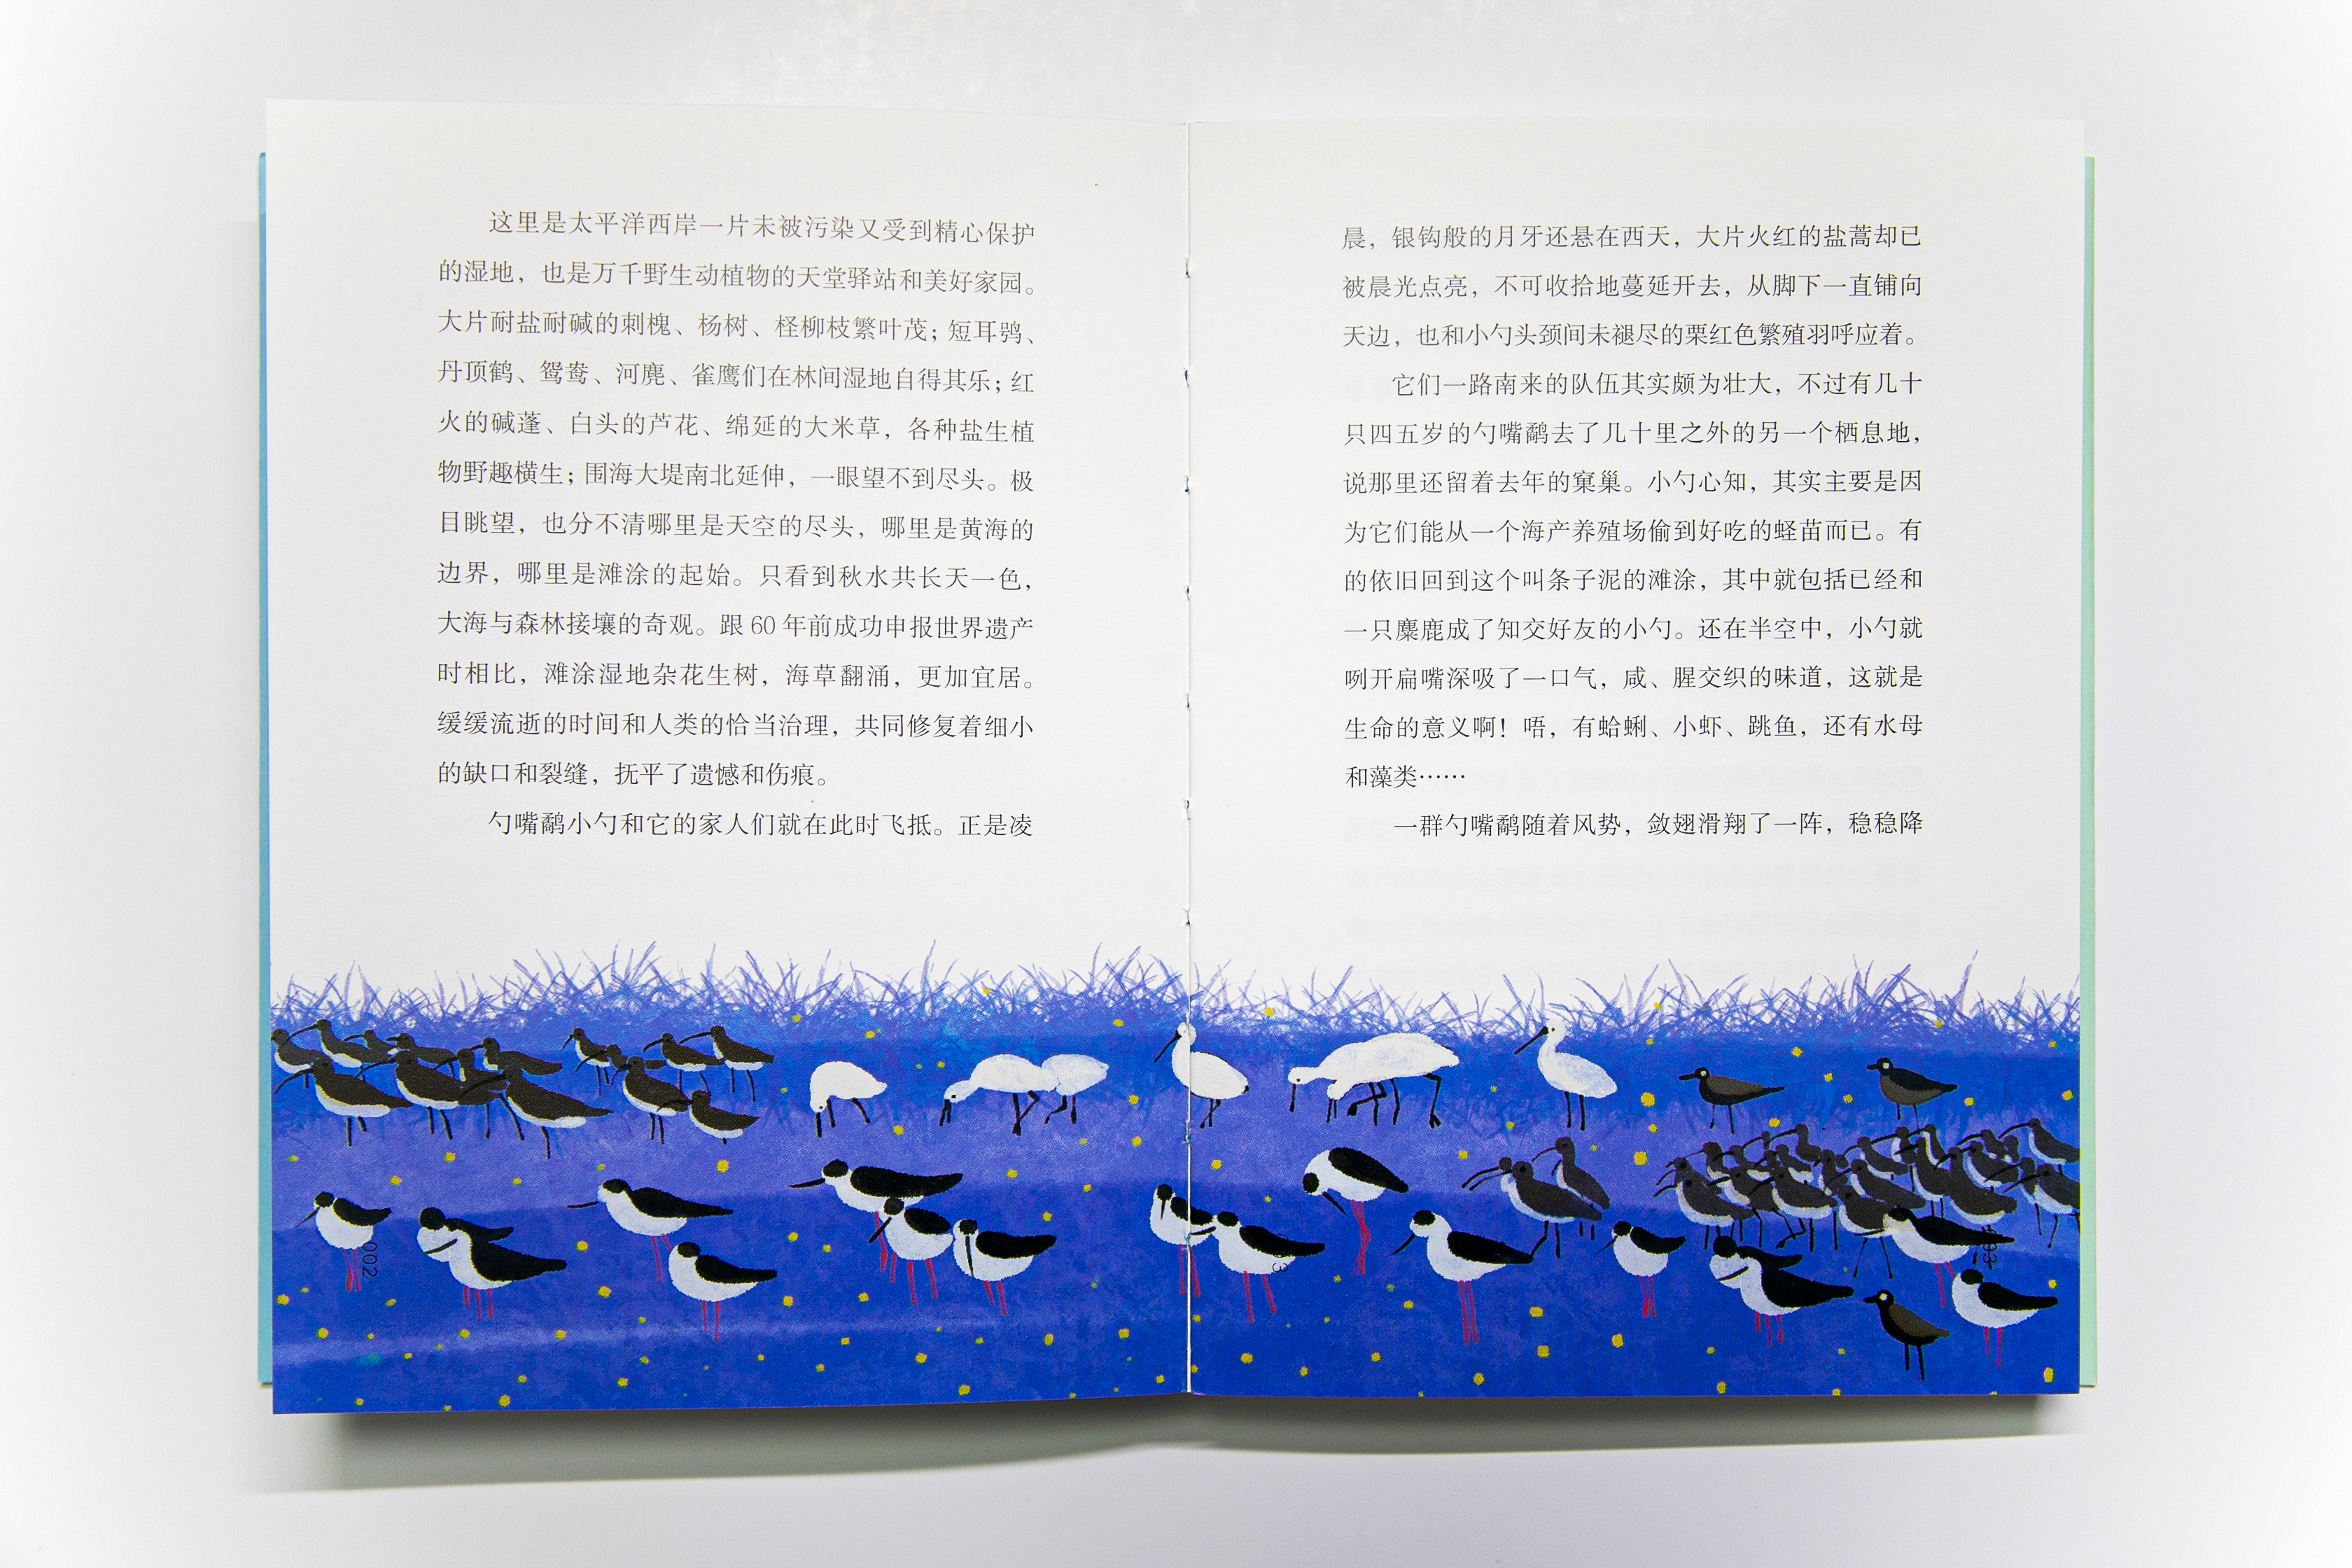 这里是太平洋西岸一片未被污染又受到精心保护
的湿地，也是万千野生动植物的天堂驿站和美好家园。
大片耐盐耐碱的刺槐、杨树、柽柳枝繁叶茂；短耳鸮、
丹顶鹤、鸳鸯、河麂、雀鹰们在林间湿地自得其乐；红
火的碱蓬、白头的芦花、绵延的大米草，各种盐生植
物野趣横生；围海大堤南北延伸，一眼望不到尽头。极
目眺望，也分不清哪里是天空的尽头，哪里是黄海的
边界，哪里是滩涂的起始。只看到秋水共长天一色，
大海与森林接壤的奇观。跟 60 年前成功申报世界遗产
时相比，滩涂湿地杂花生树，海草翻涌，更加宜居。
缓缓流逝的时间和人类的恰当治理，共同修复着细小
的缺口和裂缝，抚平了遗憾和伤痕。
勺嘴鹬小勺和它的家人们就在此时飞抵。正是凌
002
晨，银钩般的月牙还悬在西天，大片火红的盐蒿却已
被晨光点亮，不可收拾地蔓延开去，从脚下一直铺向
天边，也和小勺头颈间未褪尽的栗红色繁殖羽呼应着。
它们一路南来的队伍其实颇为壮大，不过有几十
只四五岁的勺嘴鹬去了几十里之外的另一个栖息地，
说那里还留着去年的窠巢。小勺心知，其实主要是因
为它们能从一个海产养殖场偷到好吃的蛏苗而已。有
的依旧回到这个叫条子泥的滩涂，其中就包括已经和
一只麋鹿成了知交好友的小勺。还在半空中，小勺就
咧开扁嘴深吸了一口气，咸、腥交织的味道，这就是
生命的意义啊！唔，有蛤蜊、小虾、跳鱼，还有水母
和藻类……
一群勺嘴鹬随着风势，敛翅滑翔了一阵，稳稳降